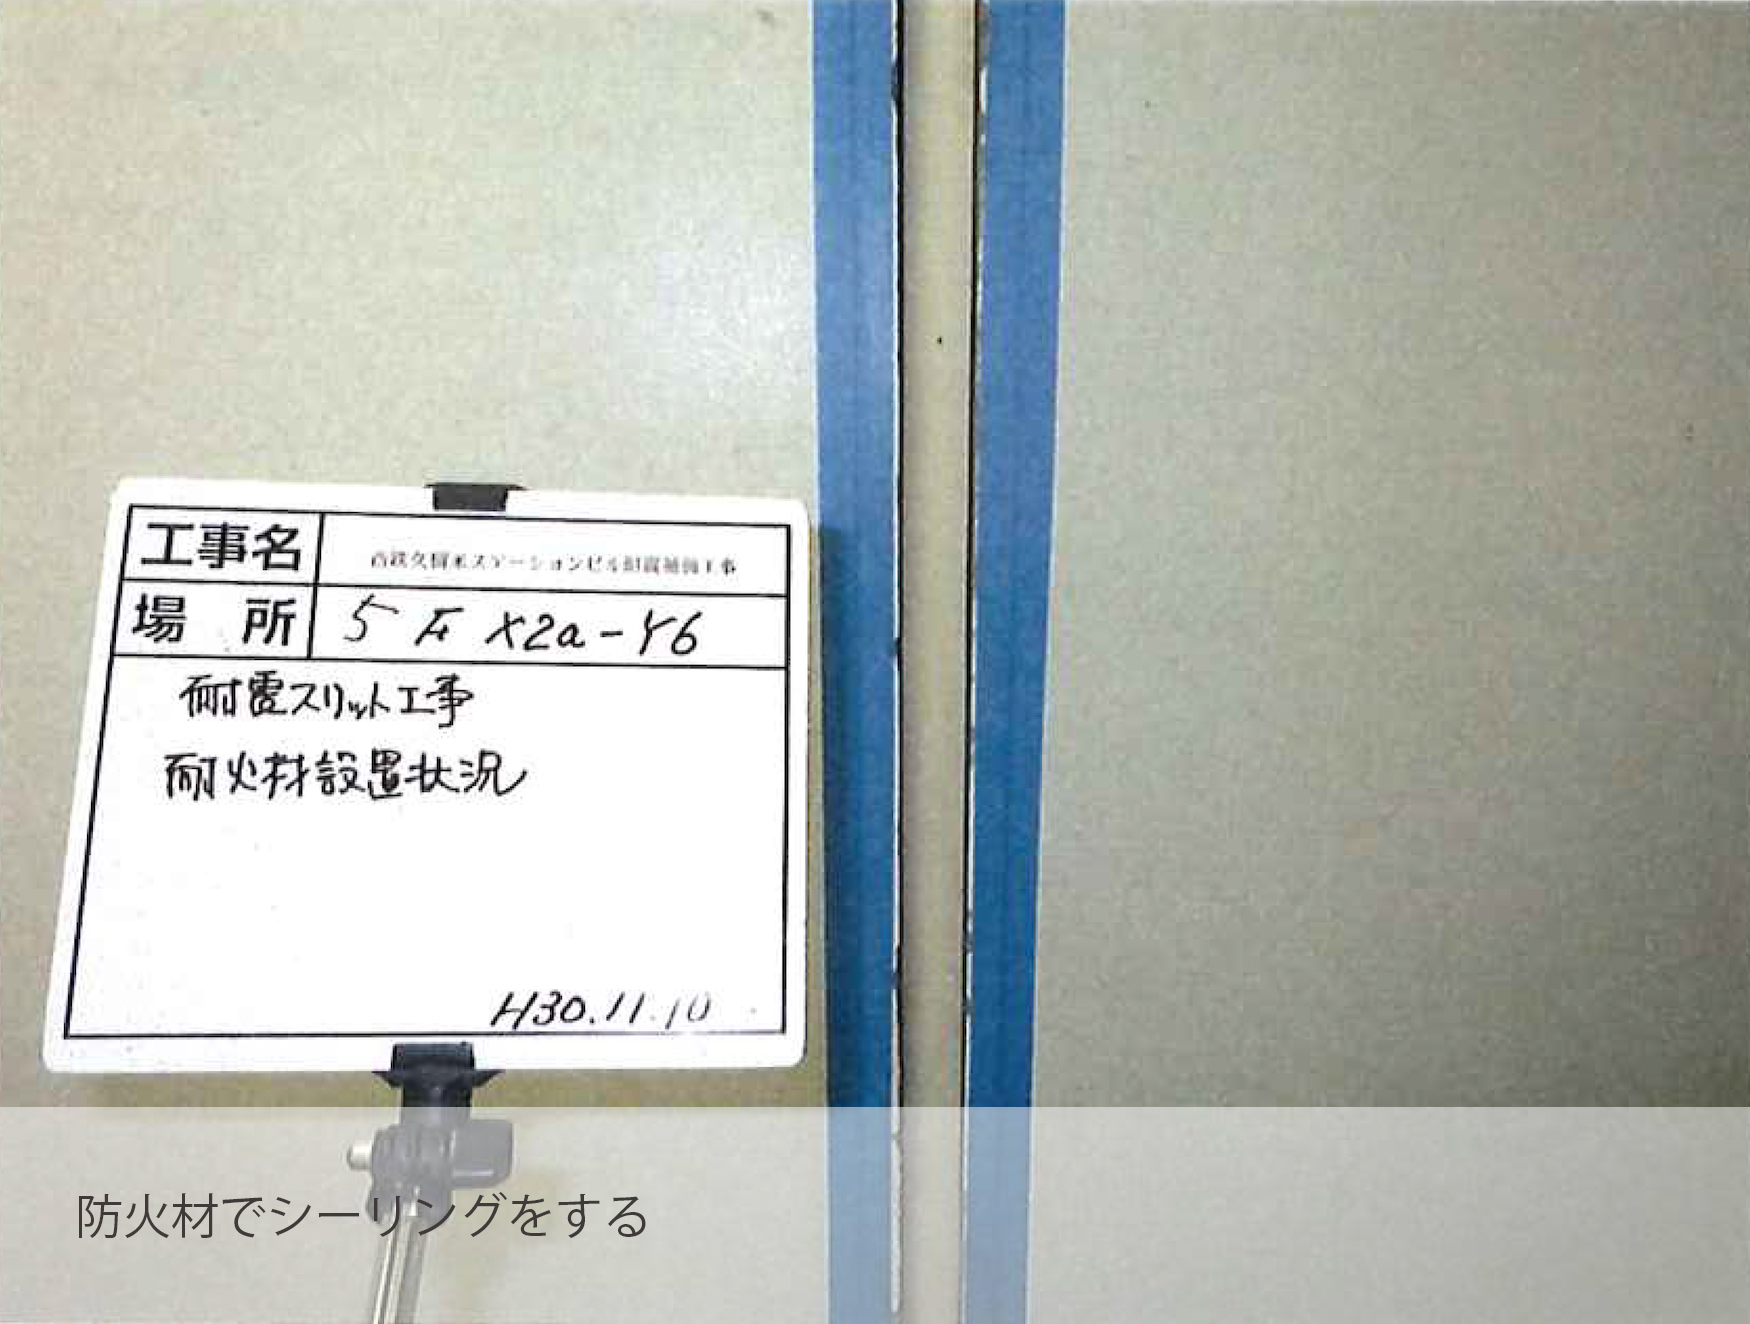 工事名 西鉄久留米ステーションビル耐震補強工事
場 所 5F X2a-Y6
耐震スリット工事
耐火材設置状況
H30.11.10
防火材でシーリングをする